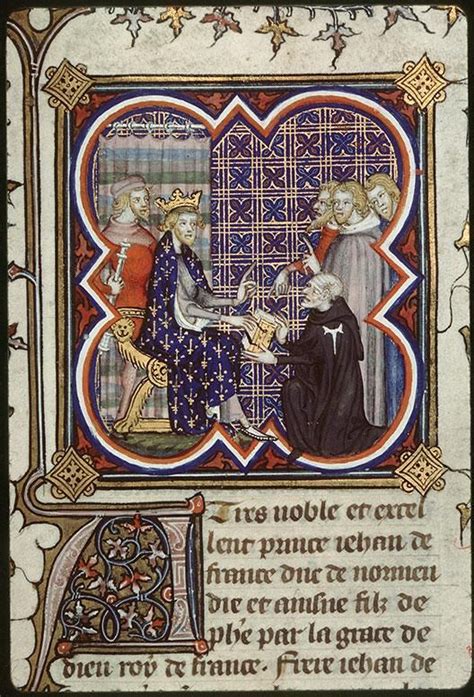 A Tres noble et excel
lent prince iehan de
france duc de normen
die et ainsne filz de
phe par la grace de
dieu roy de france. Frere iehan de